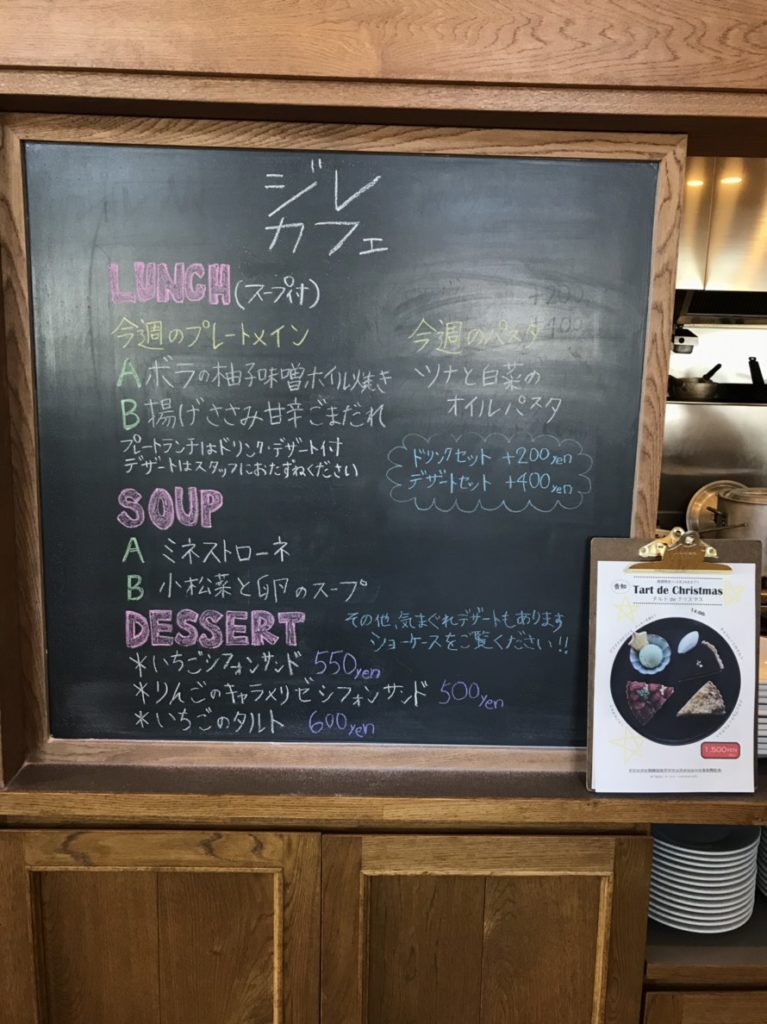 ジレ
カフェ
LUNCH (スープ付)
今週のプレートメイン
A ボラの柚子味噌ホイル焼き
B 揚げささみ甘辛ごまだれ
プレートランチはドリンク・デザート付
デザートはスタッフにおたずねください
今週のパスタ
ツナと白菜の
オイルパスタ
ドリンクセット +200yen
デザートセット +400yen
SOUP
A ミネストローネ
B 小松菜と卵のスープ
DESSERT
その他、気まぐれデザートもあります
ショーケースをご覧ください!!
*いちごシフォンサンド 550yen
*りんごのキャラメリゼシフォンサンド 500yen
*いちごのタルト 600yen
告知
Tart de Christmas
タルト de クリスマス
1,500YEN